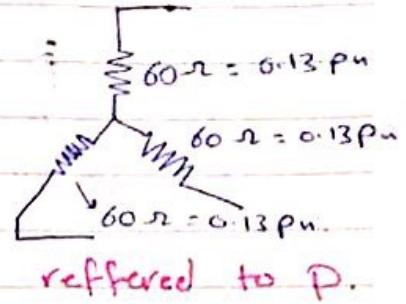 =
60 Ω = 0.13 pu
60 Ω = 0.13 pu
60 Ω = 0.13 pu.
reffered to P.